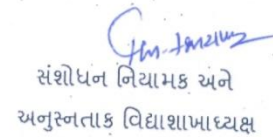 સંશોધન નિયામક અને
અનુસ્નતાક વિદ્યાશાખાધ્યક્ષ